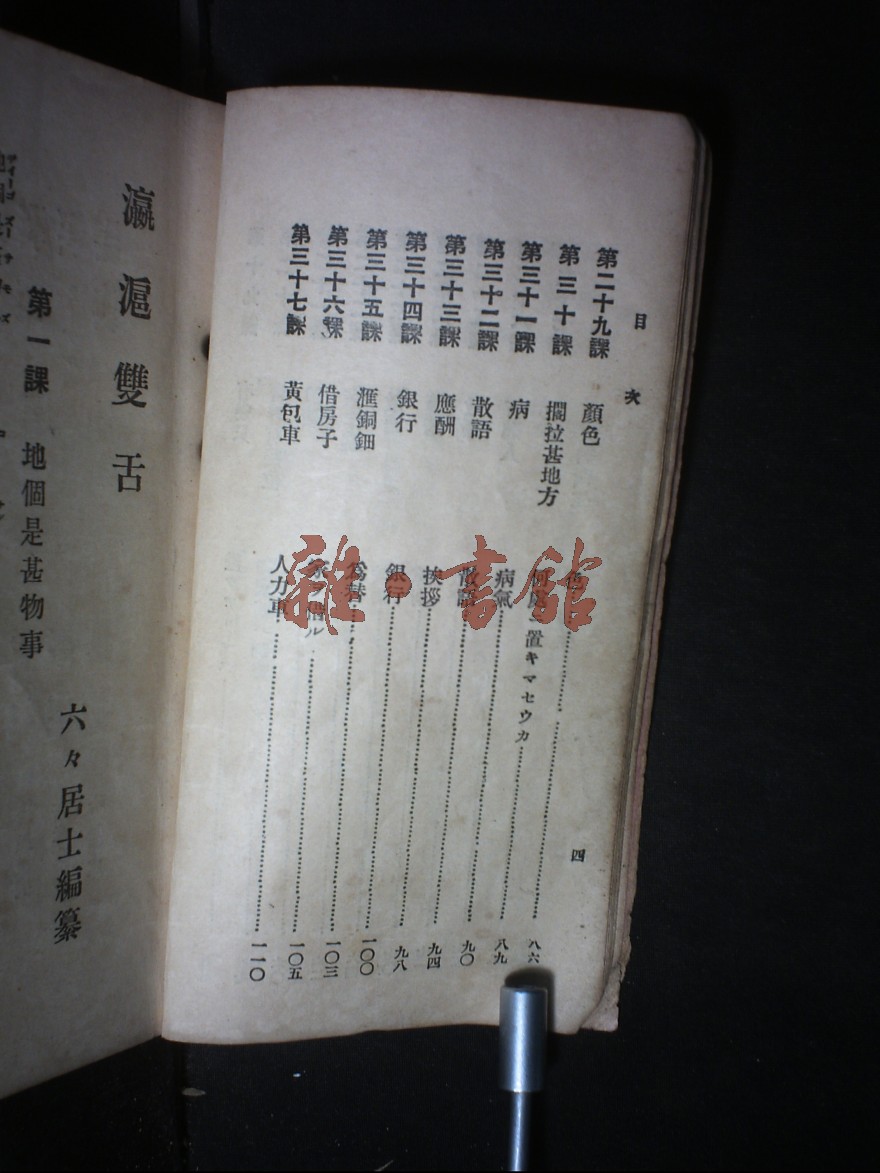 目次
四
第二十九課 顏色 色
第三十課 擱拉甚地方 何處ニ置キマセウカ 八六
第三十一課 病 病氣 八九
第三十二課 散語 散語 九〇
第三十三課 應酬 挨拶 九四
第三十四課 銀行 銀行 九八
第三十五課 滙銅鈿 爲替 一〇〇
第三十六課 借房子 家ヲ借ル 一〇三
第三十七課 黃包車 人力車 一〇五
一一〇
瀛滬雙舌
六々居士編纂
第一課 地個是甚物事
雜·書館